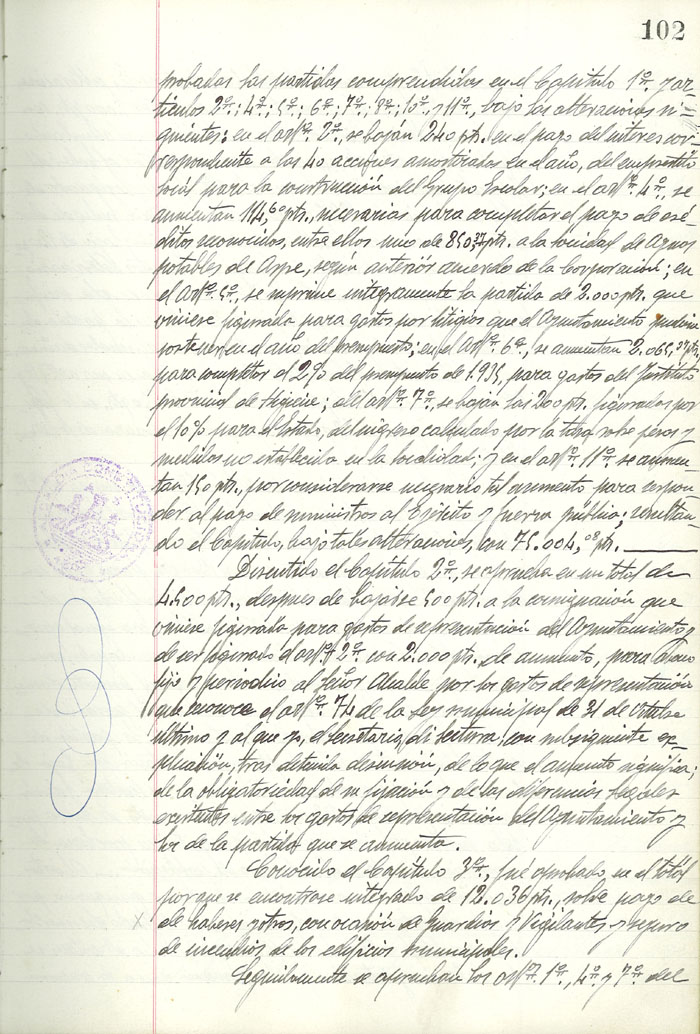 102
probadas las partidas comprendidas en el Capítulo 1º. y ar-
tículos 2º.; 4º.; 5º.; 6º.; 7º.; 8º.; 10º. y 11º., bajo las alteraciones si-
guientes: en el artº. 2º., se bajan 240 pts. en el pago del interes cor-
respondiente a las 40 acciones amortizadas en el año, del empréstito
local para la construcción del Grupo Escolar; en el artº. 4º., se
aumentan 114,60 pts., necesarias para completar el pago de cré-
ditos reconocidos, entre ellos uno de pts. a la sociedad de Aguas
potables de Aspe, según anterior acuerdo de la Corporación; en
el Artº. 5º., se suprime integramente la partida de 2.000 pts. que
viniese figurada para gastos por litigios que el Ayuntamiento pudiera
sostener en el año del presupuesto; en el Artº. 6º., se aumentan pts.
para completar el 2% del presupuesto de 1.935, para gastos del Instituto
provincial de Higiene; del artº. 7º., se bajan las 200 pts. figuradas por
el 10% para el Estado, del ingreso calculado por la tasa sobre pesas y
medidas no establecida en la localidad; y en el artº. 11º. se aumen-
tan 150 pts., por considerarse necesario tal aumento para corpon-
der al pago de suministros al Ejército y fuerza pública; resultan-
do el Capítulo, bajo tales alteraciones, con 75.004,08 pts.
Discutido el Capítulo 2º., se aprueba en un total de
4.500 pts., despues de bajarse 500 pts. a la consignación que
viniese figurada para gastos de representación del Ayuntamiento y
de ser figurado el artº. 2º. con 2.000 pts. de aumento, para abono
fijo y periodico al Señor Alcalde por los gastos de representación
que reconoce el artº. 74 de la Ley municipal de 31 de Octubre
último y al que yo, el Secretario, di lectura, con subsiguiente ex-
plicación, tras detenida discusión, de lo que el aumento significa;
de la obligatoriedad de su fijación y de las diferencias legales
existentes entre los gastos de representación del Ayuntamiento y
los de la partida que se aumenta.
Conocido el Capítulo 3º., fué aprobado en el total
porque se encontrase integrado de 12.036 pts., sobre pago de
de haberes y otros, con ocasión de Guardias y Vigilantes y seguro
de incendios de los edificios municipales.
Seguidamente se aprueban los artºs. 1º., 4º. y 7º. del